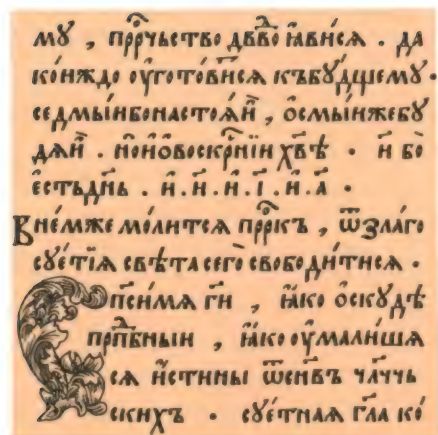 мꙋ̀ , прⷪ҇рчьство дв҃дво ꙗ҆ви́сѧ . да
ко́нждо ᲂу҆гото́ви́сѧ къбꙋ́дꙋщемꙋ ·
седмы́и бо настоѧ́й , о҆смы́иже бꙋ́
дѧй . но и҆ ѡ҆ воскрⷭ҇нїи хв҃ѣ · и҆ бо̀
є҆сть дн҃ь . и҆ . и҆ . и҆ . і҆ . и҆ . а҆ ·
В не́мже мо́литсѧ прⷪ҇ркъ , ѿ зла́го
сꙋ́є҆тїѧ свѣ́та сего̀ свободи́тисѧ ·
Сп҃си́ мѧ гⷭ҇и , ꙗ҆́ко ѡ҆скꙋдѣ̀
прпⷣбныи , ꙗ҆́ко ᲂу҆мали́шѧ
сѧ и҆́стины ѿ сн҃въ чл҃чь
скихъ · сꙋ́є҆тнаѧ гл҃а ко́